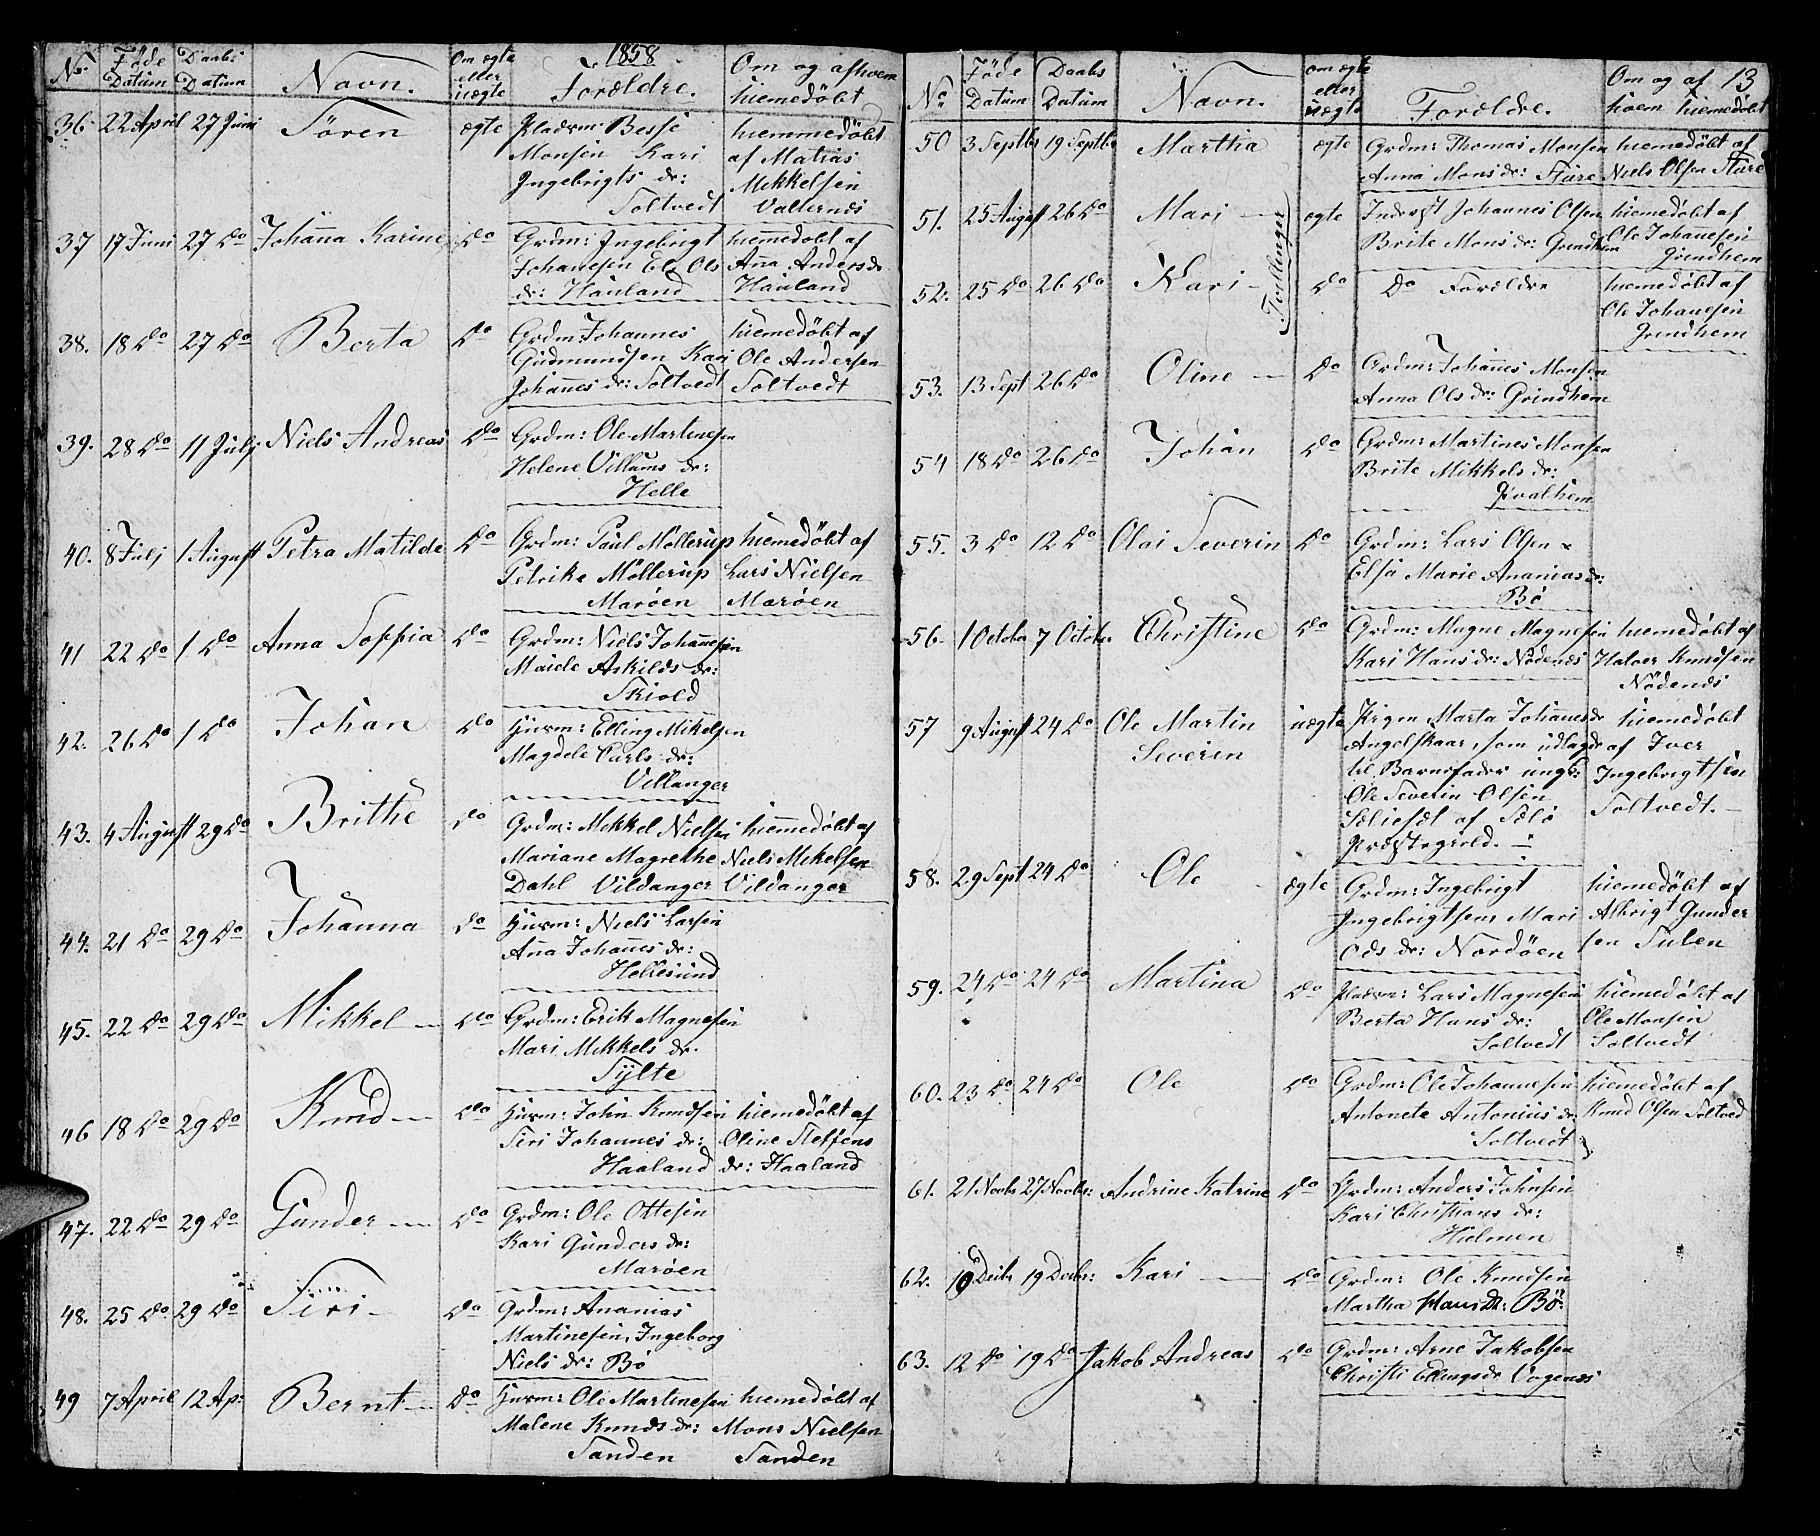 1858
No. Föde Datum Daabs Datum Navn. Om ægte eller uægte Forældre. Om og af hvem hiemedöbt
36 22 April 27 Juni Sören ægte Pladsm: Besse hiemmedöbt
Monsen Kari af Matias
Ingebrigts dr: Mikkelsen
Soltvedt Valternes
37 17 Juni 27 Do Johanna Karine Do Grdm: Ingebrigt hiemedöbt af
Johanesen Eli Ols Anna Anders dr
dr: Hauland Hauland
38. 18 Do 27 Do Berta Do Grdm: Johannes hiemedöbt af
Gudmundsen Kari Ole Andersen
Johannes dr: Soltvedt Soltvedt
39. 28 Do 11 Julj Niels Andreas Do Grdm: Ole Martinesen
Helene Villums dr:
Helle
40. 8 Julj 1 August Petra Matilde Do Grdm: Paul Möllerup hiemedöbt af
Petrike Möllerup Lars Nielsen
Maröen Maröen
41 22 Do 1 Do Anna Soffia Do Grdm: Niels Johannesen
Maiele Askilds dr:
Skiold
42. 26 Do 1 Do Johan Do Husm: Elling Mikelsen
Magdele Carls dr:
Villanger
43. 4 August 29 Do Brithe Do Grdm: Mikkel Nielsen hiemmedöbt af
Mariane Magrethe Niels Mikelsen
Dahl Vildanger Vildanger
44. 21 Do 29 Do Johanna Do Husm: Niels Larsen
Ana Johanes dr:
Hellesund
45. 22 Do 29 Do Mikkel Do Grdm: Erik Magnesen
Mari Mikkels dr.
Sylte
46 18 Do 29 Do Knud Do Husm: John Knudsen hiemedöbt af
Siri Johannes dr: Oline Steffens
Haaland dr: Haaland
47. 22 Do 29 Do Gunder Do Grdm: Ole Ottesen
Kari Gunders dr:
Maröen
48. 25 Do 29 Do Siri Do Grdm: Ananias
Martinesen, Ingeborg
Niels dr: Bö
49 7 April 12 Ap: Bernt Do Husm: Ole Martinesen hiemedöbt af
Malene Knuds dr: Mons Nielsen
Sanden Sanden
13
No. Föde Datum Daabs Datum Navn. om ægte eller uægte Forældre. Om og af hvem hiemedöbt
50 3 Septbr 19 Septbr Martha ægte Grdm: Thomas Monsen hiemedöbt af
Anna Mons dr: Sture Niels Olsen Sture
51. 25 August 26 Do Mari ægte Inderst Johannes Olsen hiemedöbt af
Brite Mons dr: Grindhem Ole Johannesen
Grindhem
Tvillinger
52. 25 Do 26 Do Kari Do Do Forældre hiemedöbt af
Ole Johanesen
Grindhem
53. 13 Sept 26 Do Oline Do Grdm: Johannes Monsen
Anna Ols dr: Grindhem
54 18 Do 26 Do Johan Do Grdm: Martines Monsen
Brite Mikkels dr:
Qvalhem
55. 3 Do 12 Do Olai Severin Do Grdm: Lars Olsen
Elsa Marie Ananias dr:
Bö
56. 1 Octobr 7 Octobr Christine Do Grdm: Magne Magnesen hiemedöbt af
Kari Hans dr: Nödenæs Halver Knudsen
Nödenes
57 9 August 24 Do Ole Martin uægte Pigen Marta Johannesdr hiemedöbt
Severin Angelskaar, som udlagde af Iver
til Barnefader ungk: Ingebrigtsen
Ole Severin Olsen Soltvedt.
Sæliesæt af Sölö
Præstegield.
58. 29 Sept 24 Do Ole ægte Grdm: Ingebrigt hiemedöbt af
Ingebrigtsen Mari Albrigt Gunder
Ods dr: Nordöen sen Sulen
59. 24 Do 24 Do Martina Do Pladsm: Lars Magnesen hiemedöbt af
Berta Hans dr: Ole Monsen
Soltvedt Soltvedt
60. 23 Do 24 Do Ole Do Grdm: Ole Johannesen hiemedöbt af
Antonete Antonius dr. Knud Olsen Soltved
Soltvedt
61. 21 Novbr 27 Novbr: Andrine Katrine Do Grdm: Anders Johnsen
Kari Christians dr:
Hielmen
62. 10 Decbr 19 Decbr: Kari Do Grdm: Ole Knudsen
Martha Hans Dr: Bö.
63. 12 Do 19 Do Jakob Andreas Do Grdm: Arne Jakobsen
Christi Ellingsdr Vogenæs